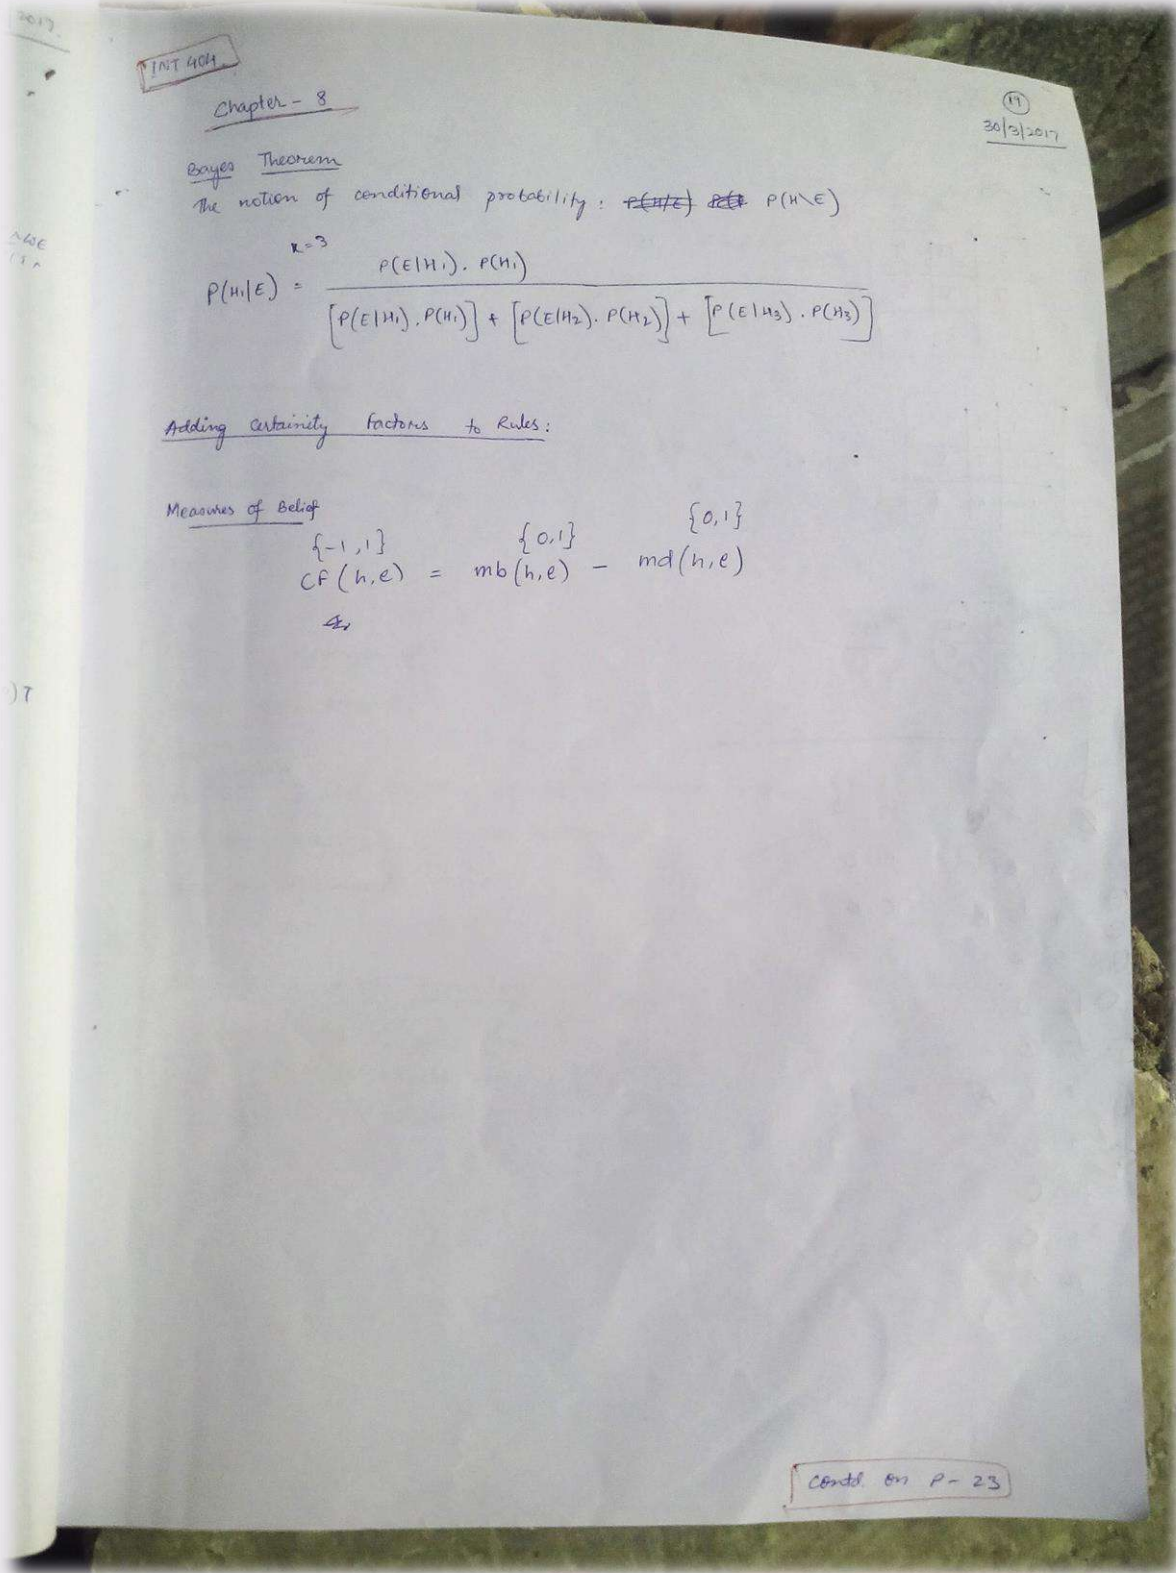 INT 404
Chapter - 8
30/3/2017
Bayes Theorem
The notion of conditional probability : P(H\E)
K=3
P(H₁|E) = P(E|H₁). P(H₁)
[P(E|H₁). P(H₁)] + [P(E|H₂). P(H₂)] + [P(E|H₃). P(H₃)]
Adding Certainity Factors to Rules:
Measures of Belief
{-1,1} {0,1} {0,1}
CF(h,e) = mb(h,e) - md(h,e)
Contd. on P- 23